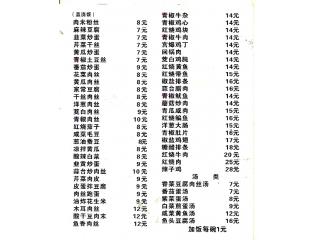 (盖浇饭)
肉末粉丝 8元
麻辣豆腐 7元
韭菜炒蛋 7元
芹菜干丝 7元
黄瓜炒蛋 7元
青椒土豆丝 7元
番茄炒蛋 9元
花菜肉丝 8元
黄瓜肉丝 8元
家常豆腐 8元
干丝肉丝 8元
洋葱肉丝 8元
茭白肉丝 9元
青椒肉丝 10元
红烧茄子 8元
咸菜毛豆 8元
葱油香豆 8元
凉拌黄瓜 8元
酸辣白菜 8元
韭黄炒蛋 9元
蒜苔炒肉丝 10元
芹菜肉皮 9元
皮蛋拌豆腐 9元
肉丝跑蛋 9元
油炸花生米 9元
木耳肉丝 12元
酸干豆肉末 12元
鱼香肉丝 12元
青椒牛杂 14元
青椒鸡心 14元
红烧鸡块 14元
青椒牛肉 14元
宫爆鸡丁 14元
回锅肉 14元
茭白鸡脯 14元
红烧黄鱼 14元
红烧带鱼 15元
椒盐排条 16元
豆台腊肉 16元
青椒鱿鱼 14元
蘑菇炒肉 14元
青瓜咸肉 15元
红烧鳊鱼 16元
洋葱大肠 15元
青椒肚片 16元
椒盐鸡翅 17元
糖醋排条 18元
红烧牛肉 20元
红烧肉 25元
辣子鸡 28元
汤 类
香菜豆腐肉丝汤 7元
番茄蛋汤 7元
紫菜蛋汤 8元
白菜煎蛋汤 9元
咸菜黄鱼汤 12元
鱼头豆腐汤 16元
加饭每碗1元